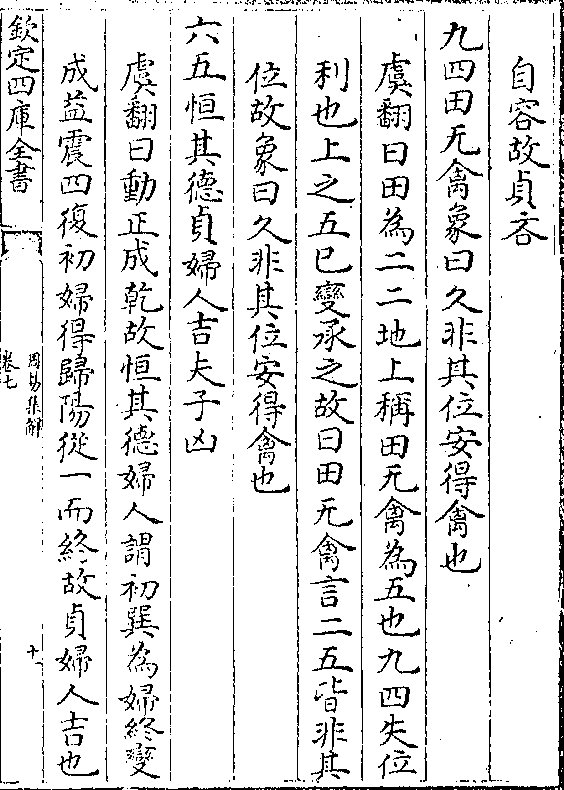 自容故貞吝
九四田无禽象曰久非其位安得禽也
虞翻曰田為二二地上稱田无禽為五也九四失位
利也上之五已變承之故曰田无禽言二五皆非其
位故象曰久非其位安得禽也
六五恒其德貞婦人吉夫子凶
虞翻曰動正成乾故恒其德婦人謂初巽為婦終變
成益震四復初婦得歸陽從一而終故貞婦人吉也
欽定四庫全書
周易集解
卷七
十